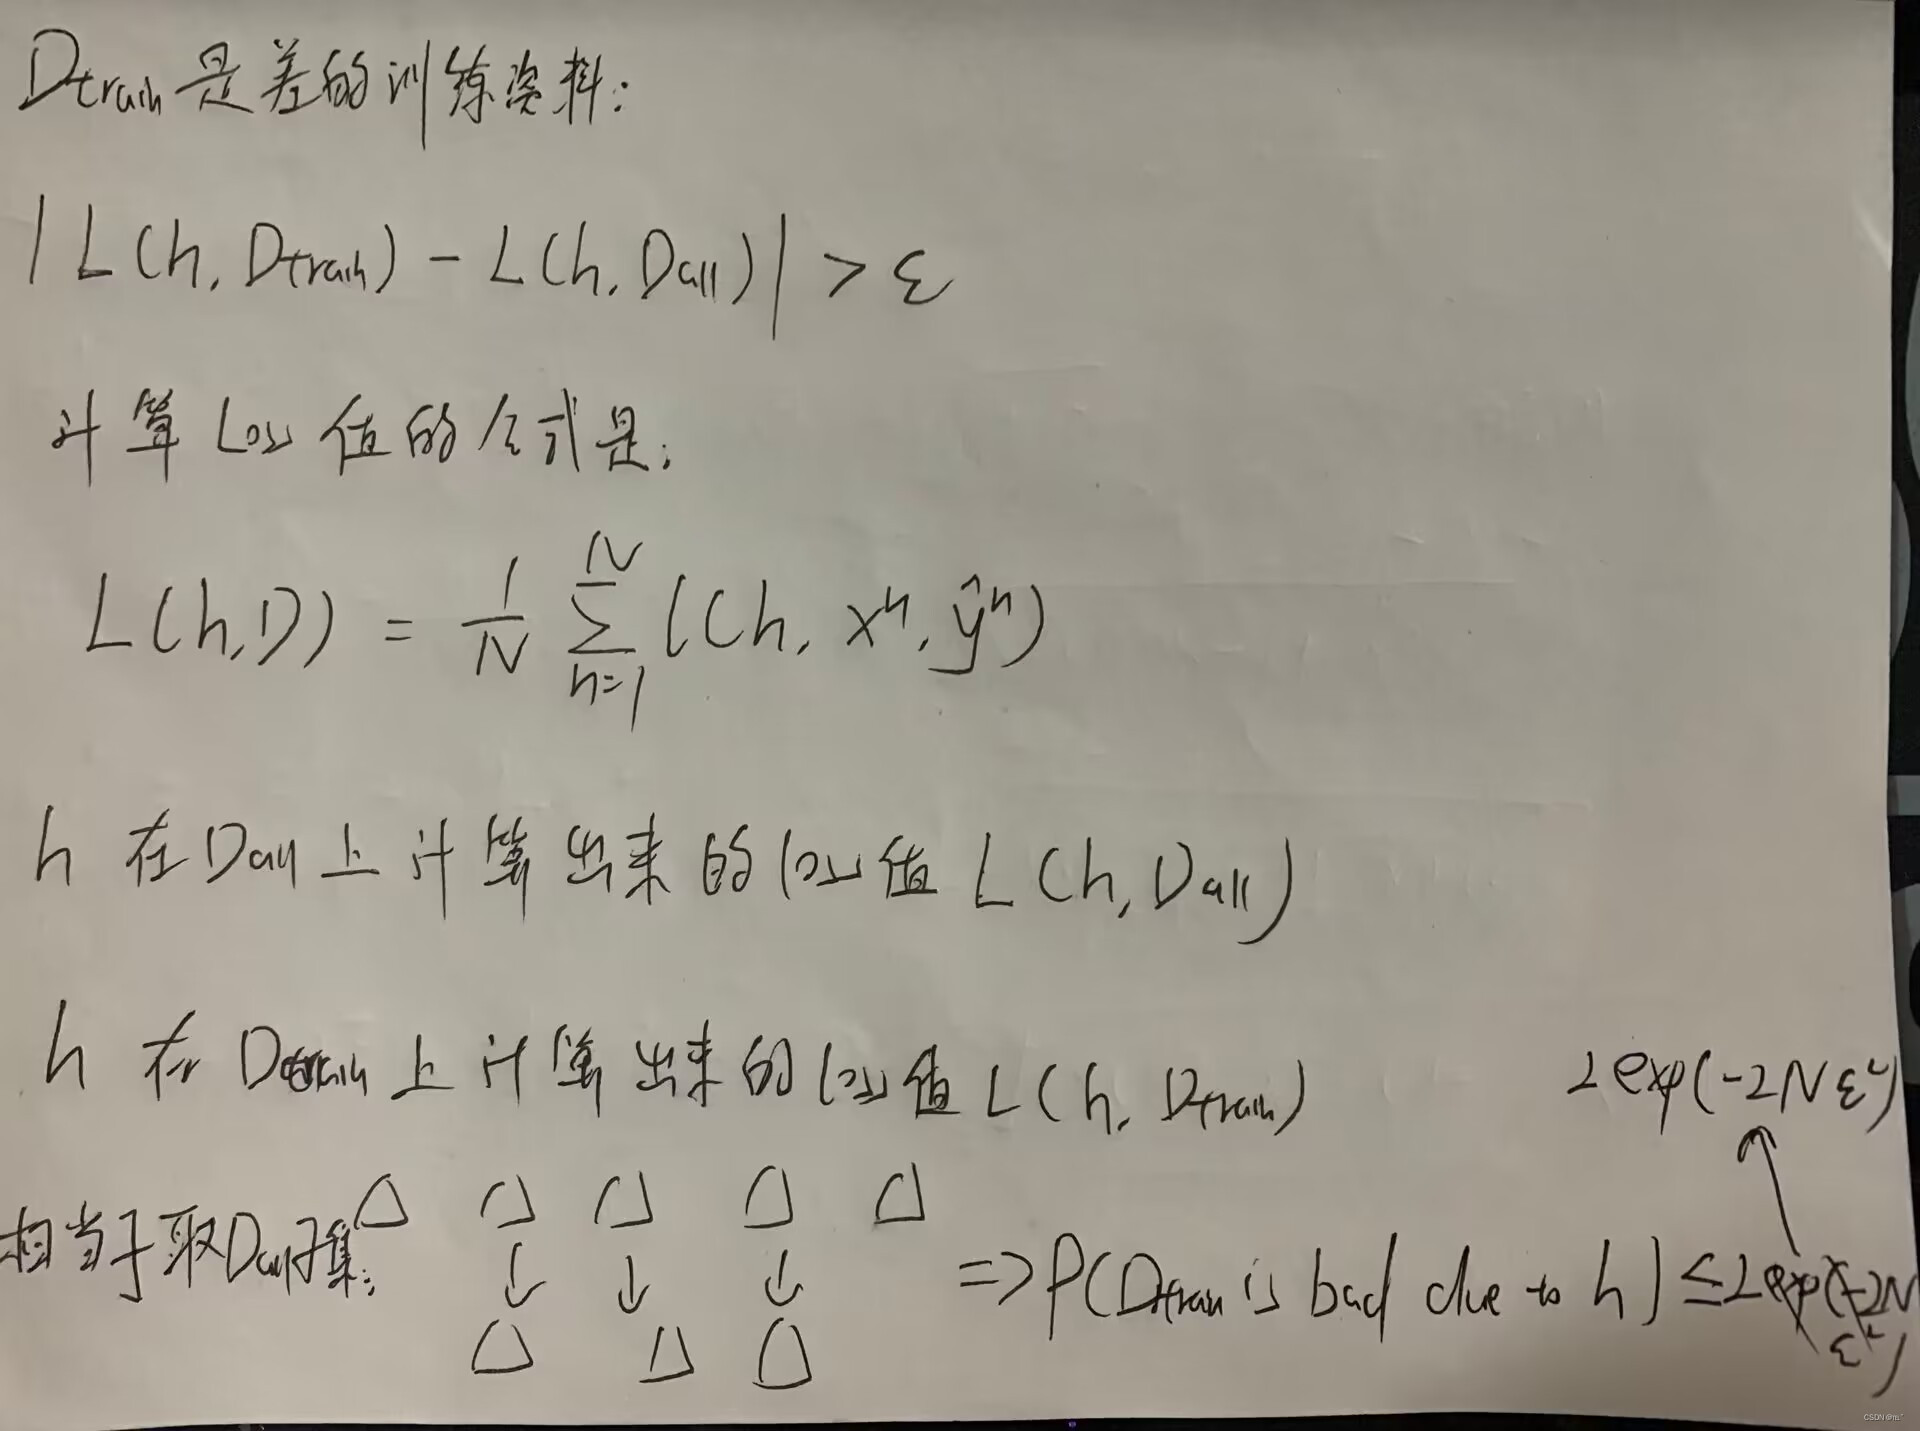 Dtrain是差的训练资料:
|L(h, Dtrain) - L(h, Dall)| > ε
计算Loss值的公式是:
L(h,D) = 1/N ∑_{n=1}^{N} l(h, x^n, ŷ^n)
h 在Dall上计算出来的loss值 L(h, Dall)
h 在Dtrain上计算出来的loss值 L(h, Dtrain)
2exp(-2Nε²)
相当于取Dall子集:
=> P(Dtrain is bad due to h) ≤ 2exp(-2N
ε²)